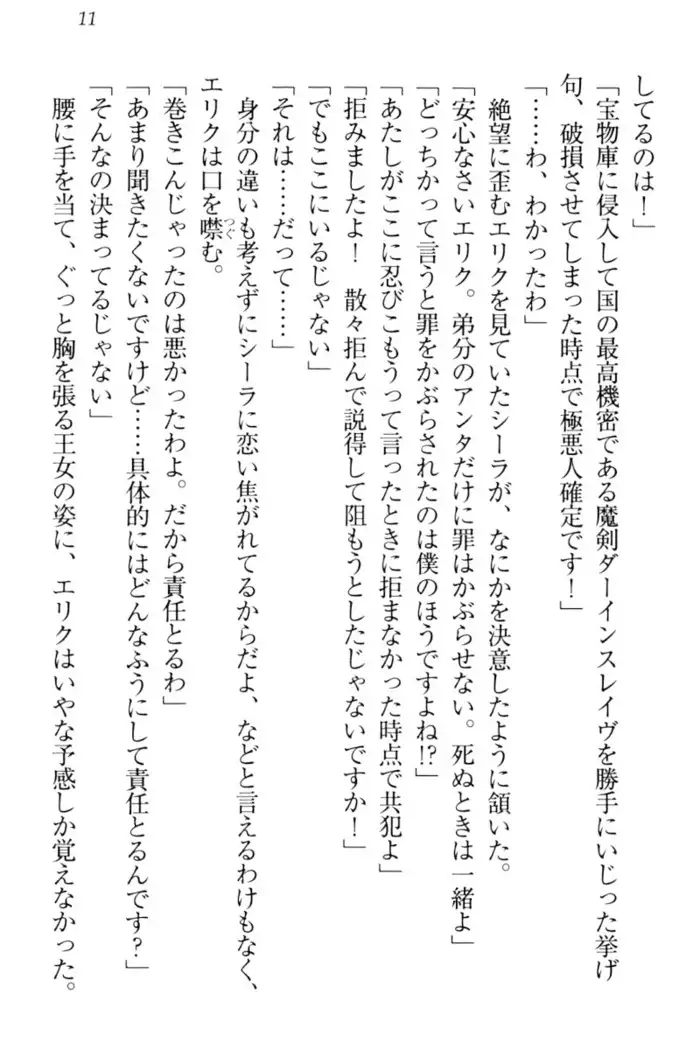 11
してるのは！」
「宝物庫に侵入して国の最高機密である魔剣ダーインスレイヴを勝手にいじった挙げ
句、破損させてしまった時点で極悪人確定です！」
「……わ、わかったわ」
絶望に歪むエリクを見ていたシーラが、なにかを決意したように頷いた。
「安心なさいエリク。弟分のアンタだけに罪はかぶらせない。死ぬときは一緒よ」
「どっちかって言うと罪をかぶらされたのは僕のほうですよね!?」
「あたしがここに忍びこもうって言ったときに拒まなかった時点で共犯よ」
「拒みましたよ！　散々拒んで説得して阻もうとしたじゃないですか！」
「でもここにいるじゃない」
「それは……だって……」
身分の違いも考えずにシーラに恋い焦がれてるからだよ、などと言えるわけもなく、
エリクは口を噤つぐむ。
「巻きこんじゃったのは悪かったわよ。だから責任とるわ」
「あまり聞きたくないですけど……具体的にはどんなふうにして責任とるんです？」
「そんなの決まってるじゃない」
腰に手を当て、ぐっと胸を張る王女の姿に、エリクはいやな予感しか覚えなかった。